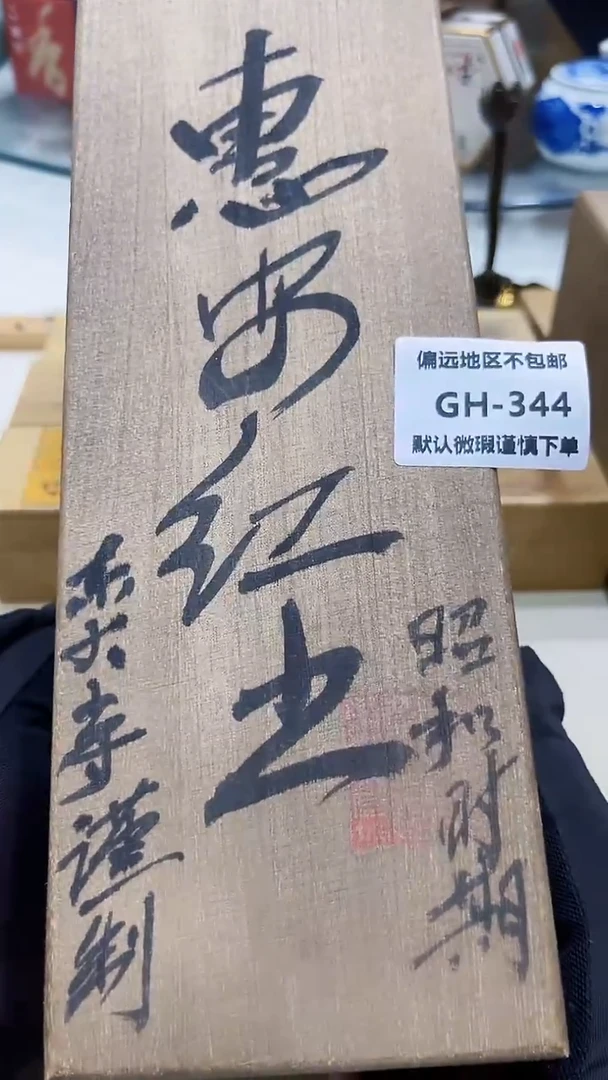 香
昭和时期
惠安红土
东大寺謹制
偏远地区不包邮
GH-344
默认微瑕谨慎下单